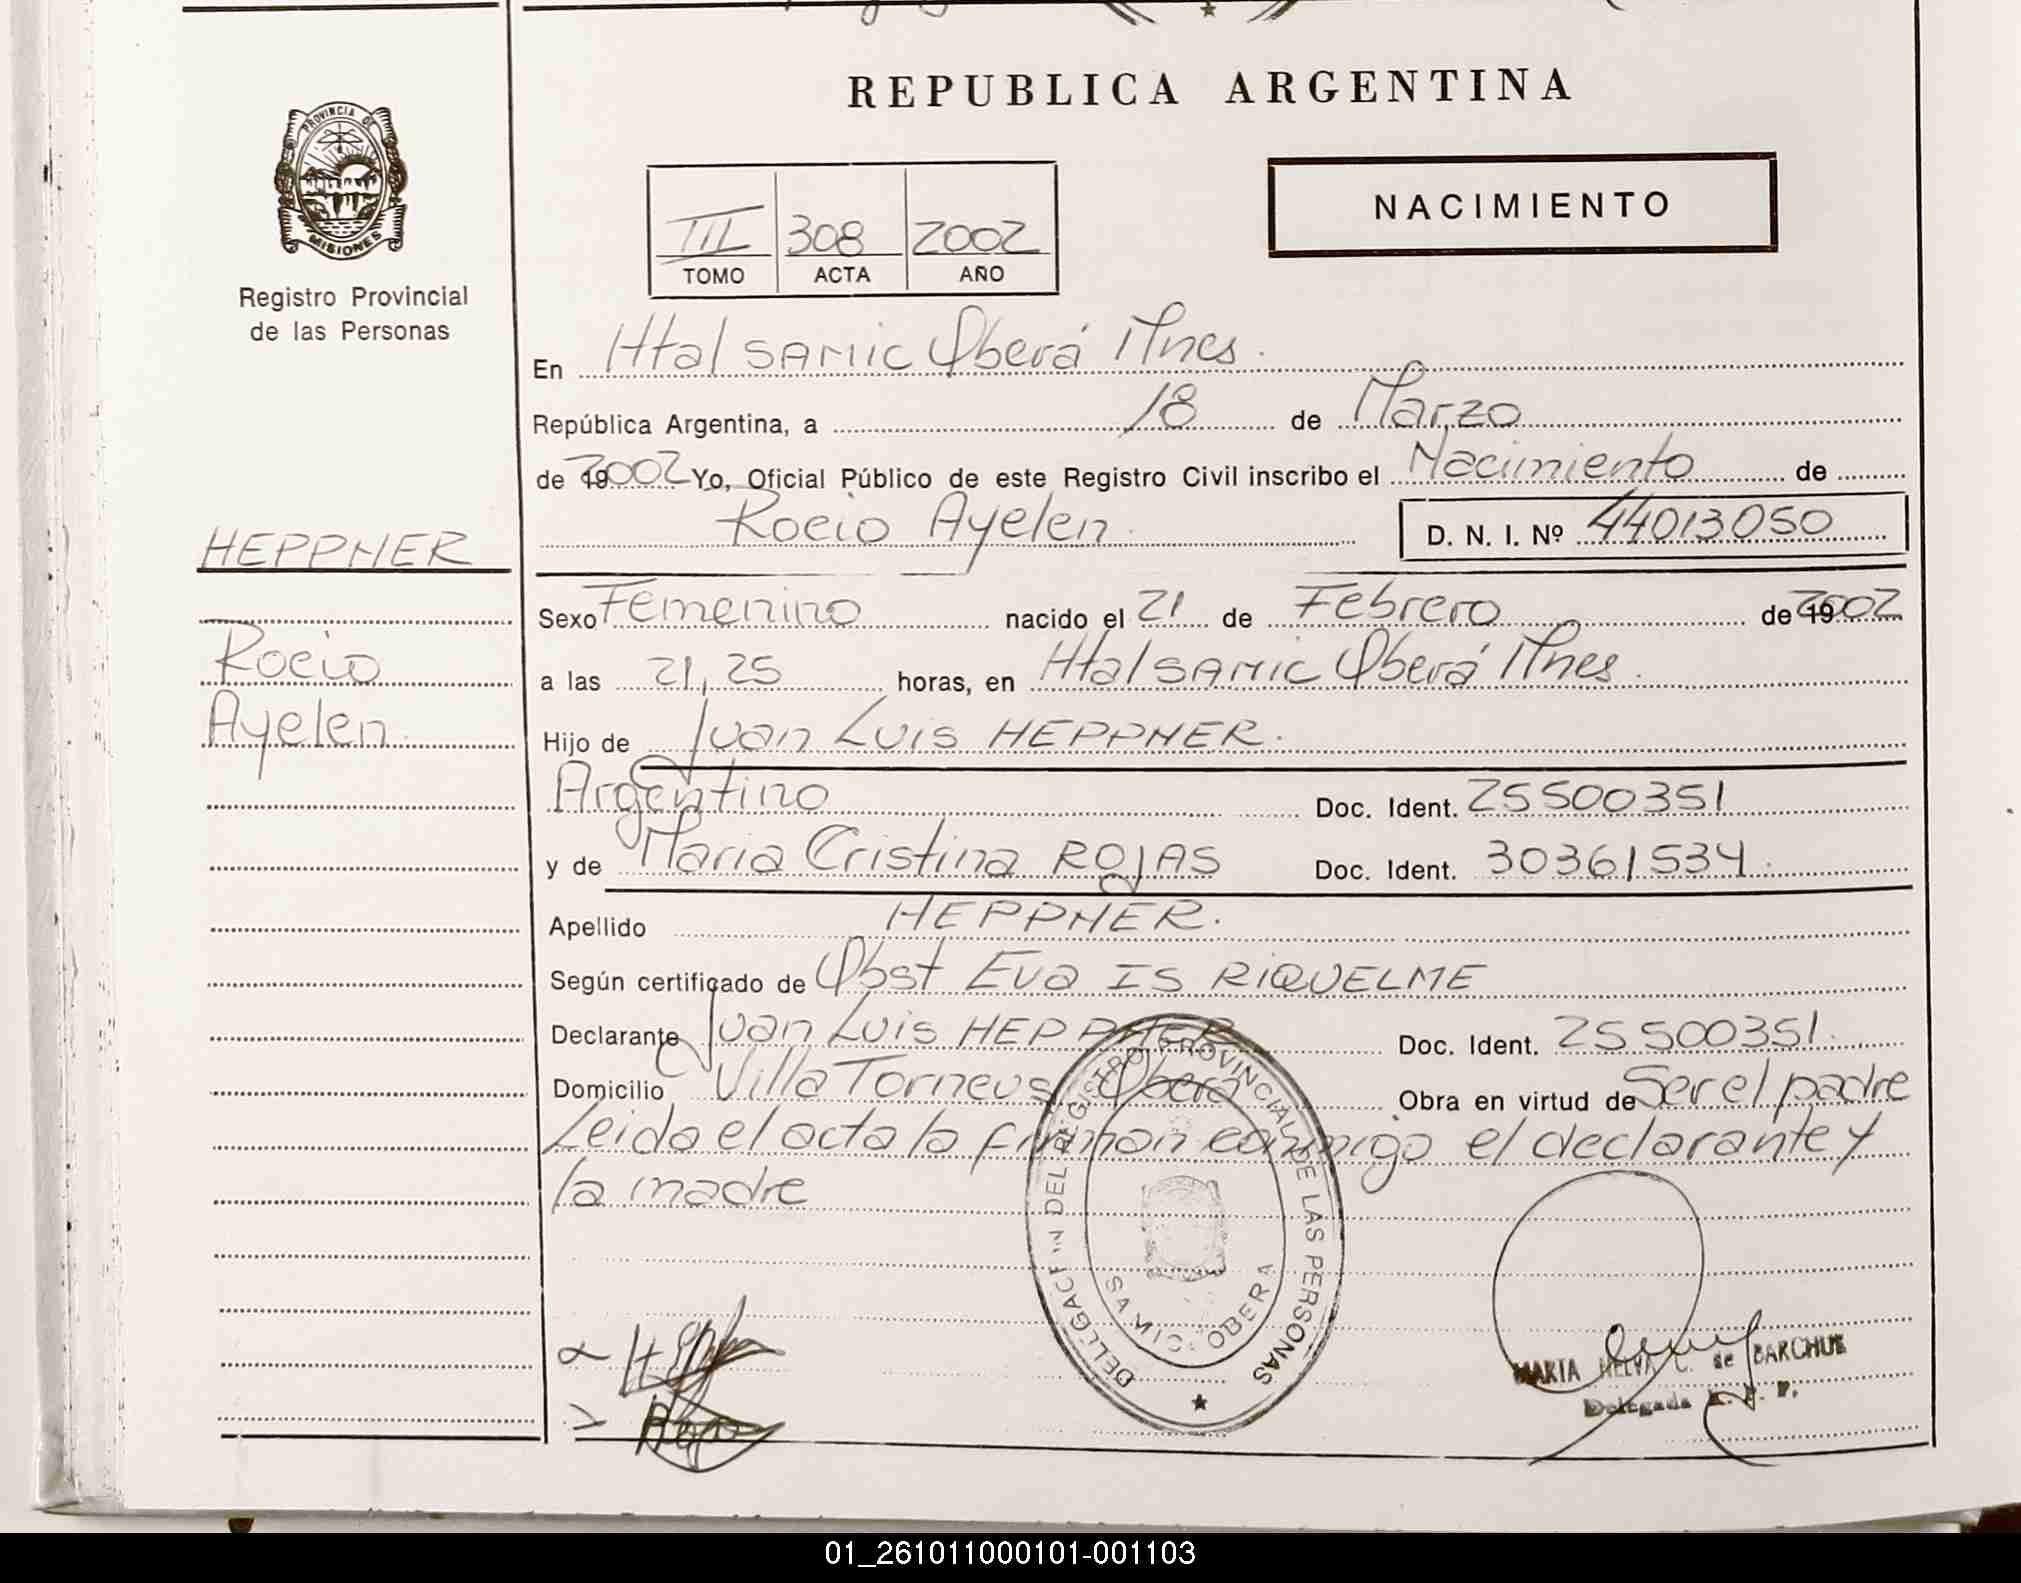 REPUBLICA ARGENTINA
PROVINCIA DE
MISIONES
Registro Provincial
de las Personas
III 308 2002
TOMO ACTA AÑO
NACIMIENTO
En Htal SAMIC Oberá Mnes.
República Argentina, a 18 de Marzo
de 2002 Yo, Oficial Público de este Registro Civil inscribo el Nacimiento de
Rocio Ayelen. D. N. I. Nº 44013050
HEPPNER
Rocio
Ayelen.
Sexo Femenino nacido el 21 de Febrero de 2002
a las 21,25 horas, en Htal SAMIC Oberá Mnes.
Hijo de Juan Luis HEPPNER.
Argentino Doc. Ident. 25500351
y de Maria Cristina ROJAS Doc. Ident. 30361534.
Apellido HEPPNER.
Según certificado de Obst Eva IS RIQUELME
Declarante Juan Luis HEPPNER Doc. Ident. 25500351.
Domicilio Villa Torneus Oberá Obra en virtud de Ser el padre
Leida el acta la firman conmigo el declarante y
la madre
DELEGACIN DEL REGISTRO PROVINCIAL DE LAS PERSONAS
SAMIC: OBERA
MARIA NELVA C. de BARCHUK
Delegada R. P. P.
01_261011000101-001103